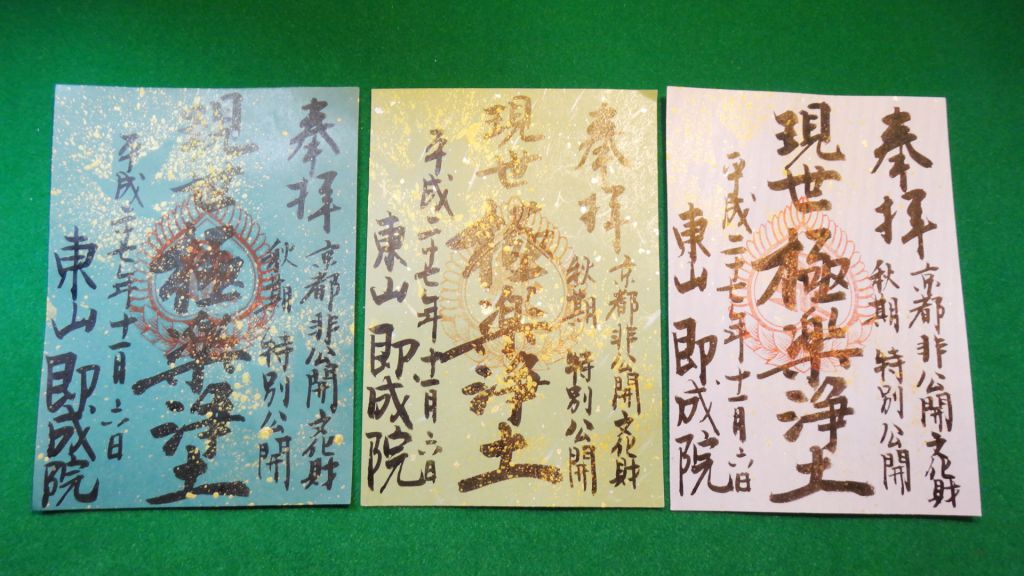 奉拝
京都非公開文化財
秋期 特別公開
現世極楽浄土
平成二十七年十一月六日
東山 即成院
奉拝
京都非公開文化財
秋期 特別公開
現世極楽浄土
平成二十七年十一月六日
東山 即成院
奉拝
京都非公開文化財
秋期 特別公開
現世極楽浄土
平成二十七年十一月六日
東山 即成院